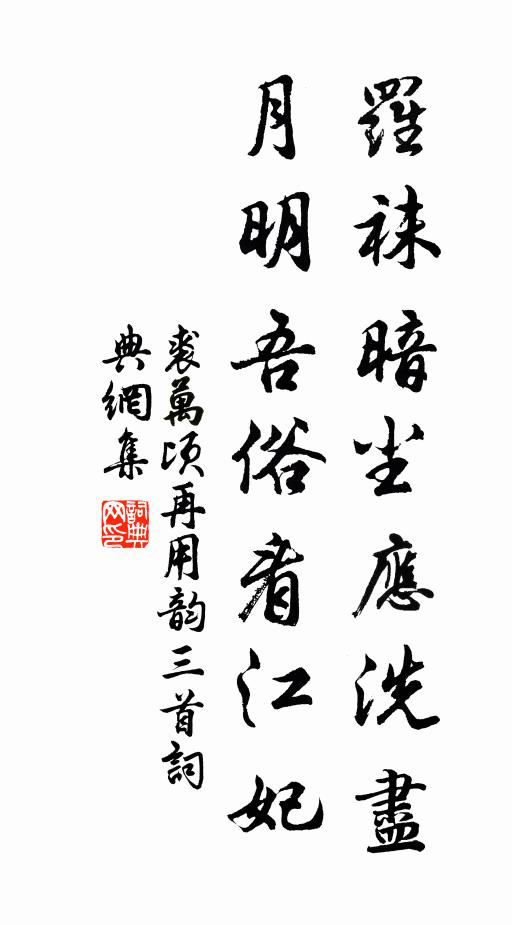 羅袜暗尘應洗盡
月明吾俗看江妃
裘萬頃再用韵三首詞
典網集
詞典网印